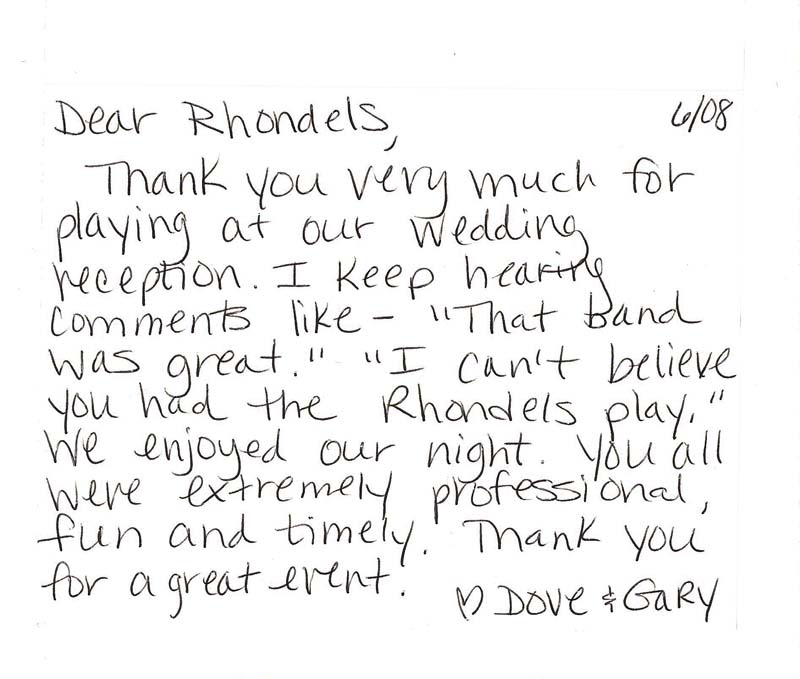 Dear Rhondels, 6/08
Thank you very much for
playing at our wedding
reception. I keep hearing
comments like - "That band
was great." "I can't believe
you had the Rhondels play."
We enjoyed our night. You all
were extremely professional,
fun and timely. Thank you
for a great event.
♡ Dove & GaRY